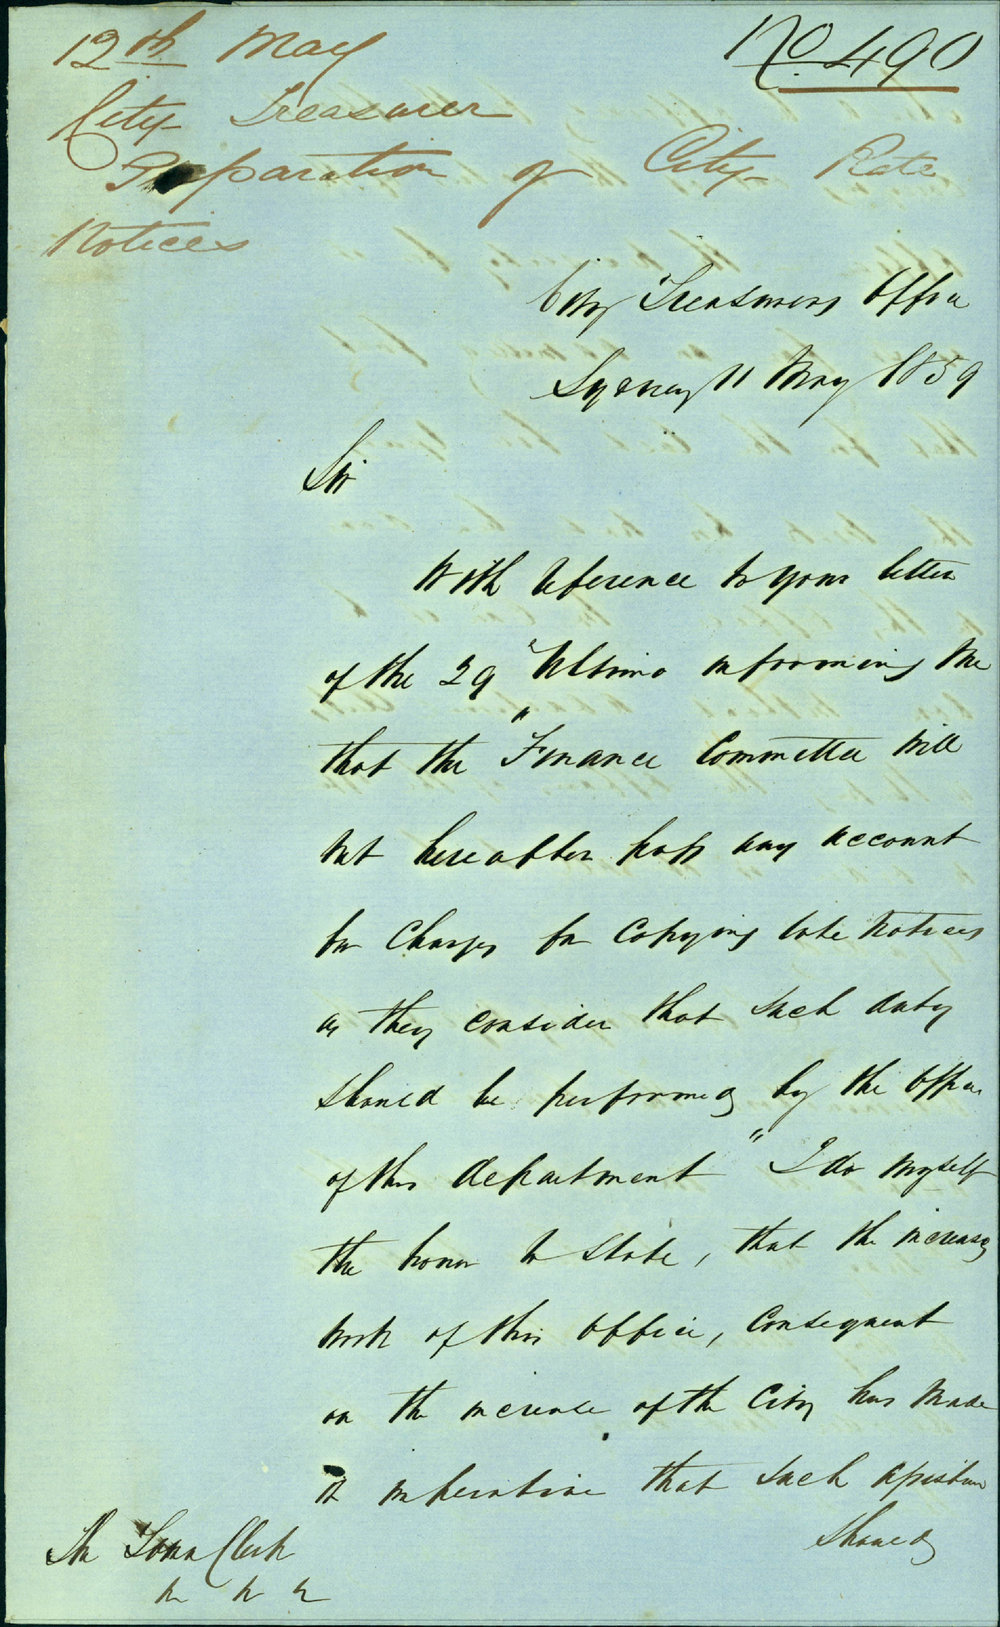 12th May
No 490
City Treasurer
Preparation of City Rate
Notices
City Treasurers Office
Sydney 11 May 1859
Sir
With reference to your letter
of the 29 Ultimo informing me
that the "Finance Committee will
not hereafter pass any account
for Charges for Copying rate notices
as they consider that such duty
should be performed by the Officers
of this department" I do myself
the honor to state, that the increasing
work of this Office, Consequent
on the increase of the City has made
it imperative that such assistance
should
The Town Clerk
&c &c &c